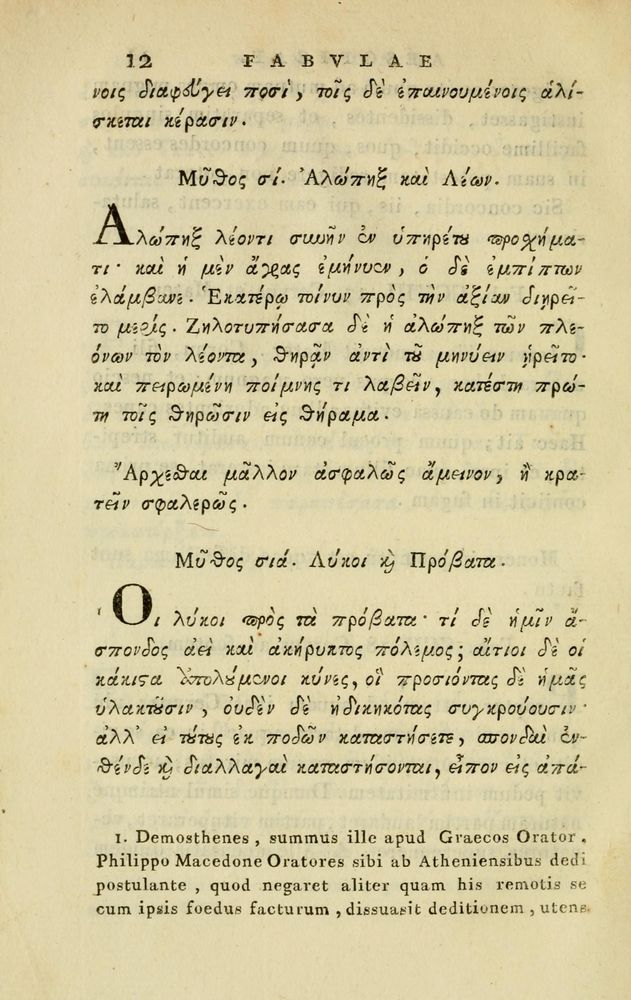 12 FABVLAE
νοις διαφεύγει ποσὶ, τοῖς δὲ ἐπαινουμένοις ἁλί-
σκεται κέρασιν.
Μῦθος σί. Ἀλώπηξ καὶ Λέων.
Αλώπηξ λέοντι συνῆν ἐν ὑπηρέτου προχήμα-
τι· καὶ ἡ μὲν ἄγρας ἐμήνυεν, ὁ δὲ ἐμπίπτων
ἐλάμβανε. Ἑκατέρῳ τοίνυν πρὸς τὴν ἀξίαν διῃρεῖ-
το μερίς. Ζηλοτυπήσασα δὲ ἡ ἀλώπηξ τῶν πλε-
όνων τὸν λέοντα, θηρᾶν ἀντὶ τοῦ μηνύειν ᾑρεῖτο·
καὶ πειρωμένη ποίμνης τι λαβεῖν, κατέστη πρώ-
τη τοῖς θηρῶσιν εἰς θήραμα.
Ἄρχεσθαι μᾶλλον ἀσφαλῶς ἄμεινον, ἢ κρα-
τεῖν σφαλερῶς.
Μῦθος σιά. Λύκοι καὶ Πρόβατα.
Οἱ λύκοι πρὸς τὰ πρόβατα· τί δὲ ἡμῖν ἄ-
σπονδος ἀεὶ καὶ ἀκήρυκτος πόλεμος; αἴτιοι δὲ οἱ
κάκιστα ἀπολούμενοι κύνες, οἳ προσιόντας δὲ ἡμᾶς
ὑλακτοῦσιν, οὐδὲν δὲ ἠδικηκότας συγκρούουσιν·
ἀλλ' εἰ τούτους ἐκ ποδῶν καταστήσετε, σπονδαὶ ἐν-
θένδε καὶ διαλλαγαὶ καταστήσονται, εἶπον εἰς ἁπά-
1. Demosthenes, summus ille apud Graecos Orator,
Philippo Macedone Oratores sibi ab Atheniensibus dedi
postulante, quod negaret aliter quam his remotis se
cum ipsis foedus facturum, dissuasit deditionem, utens